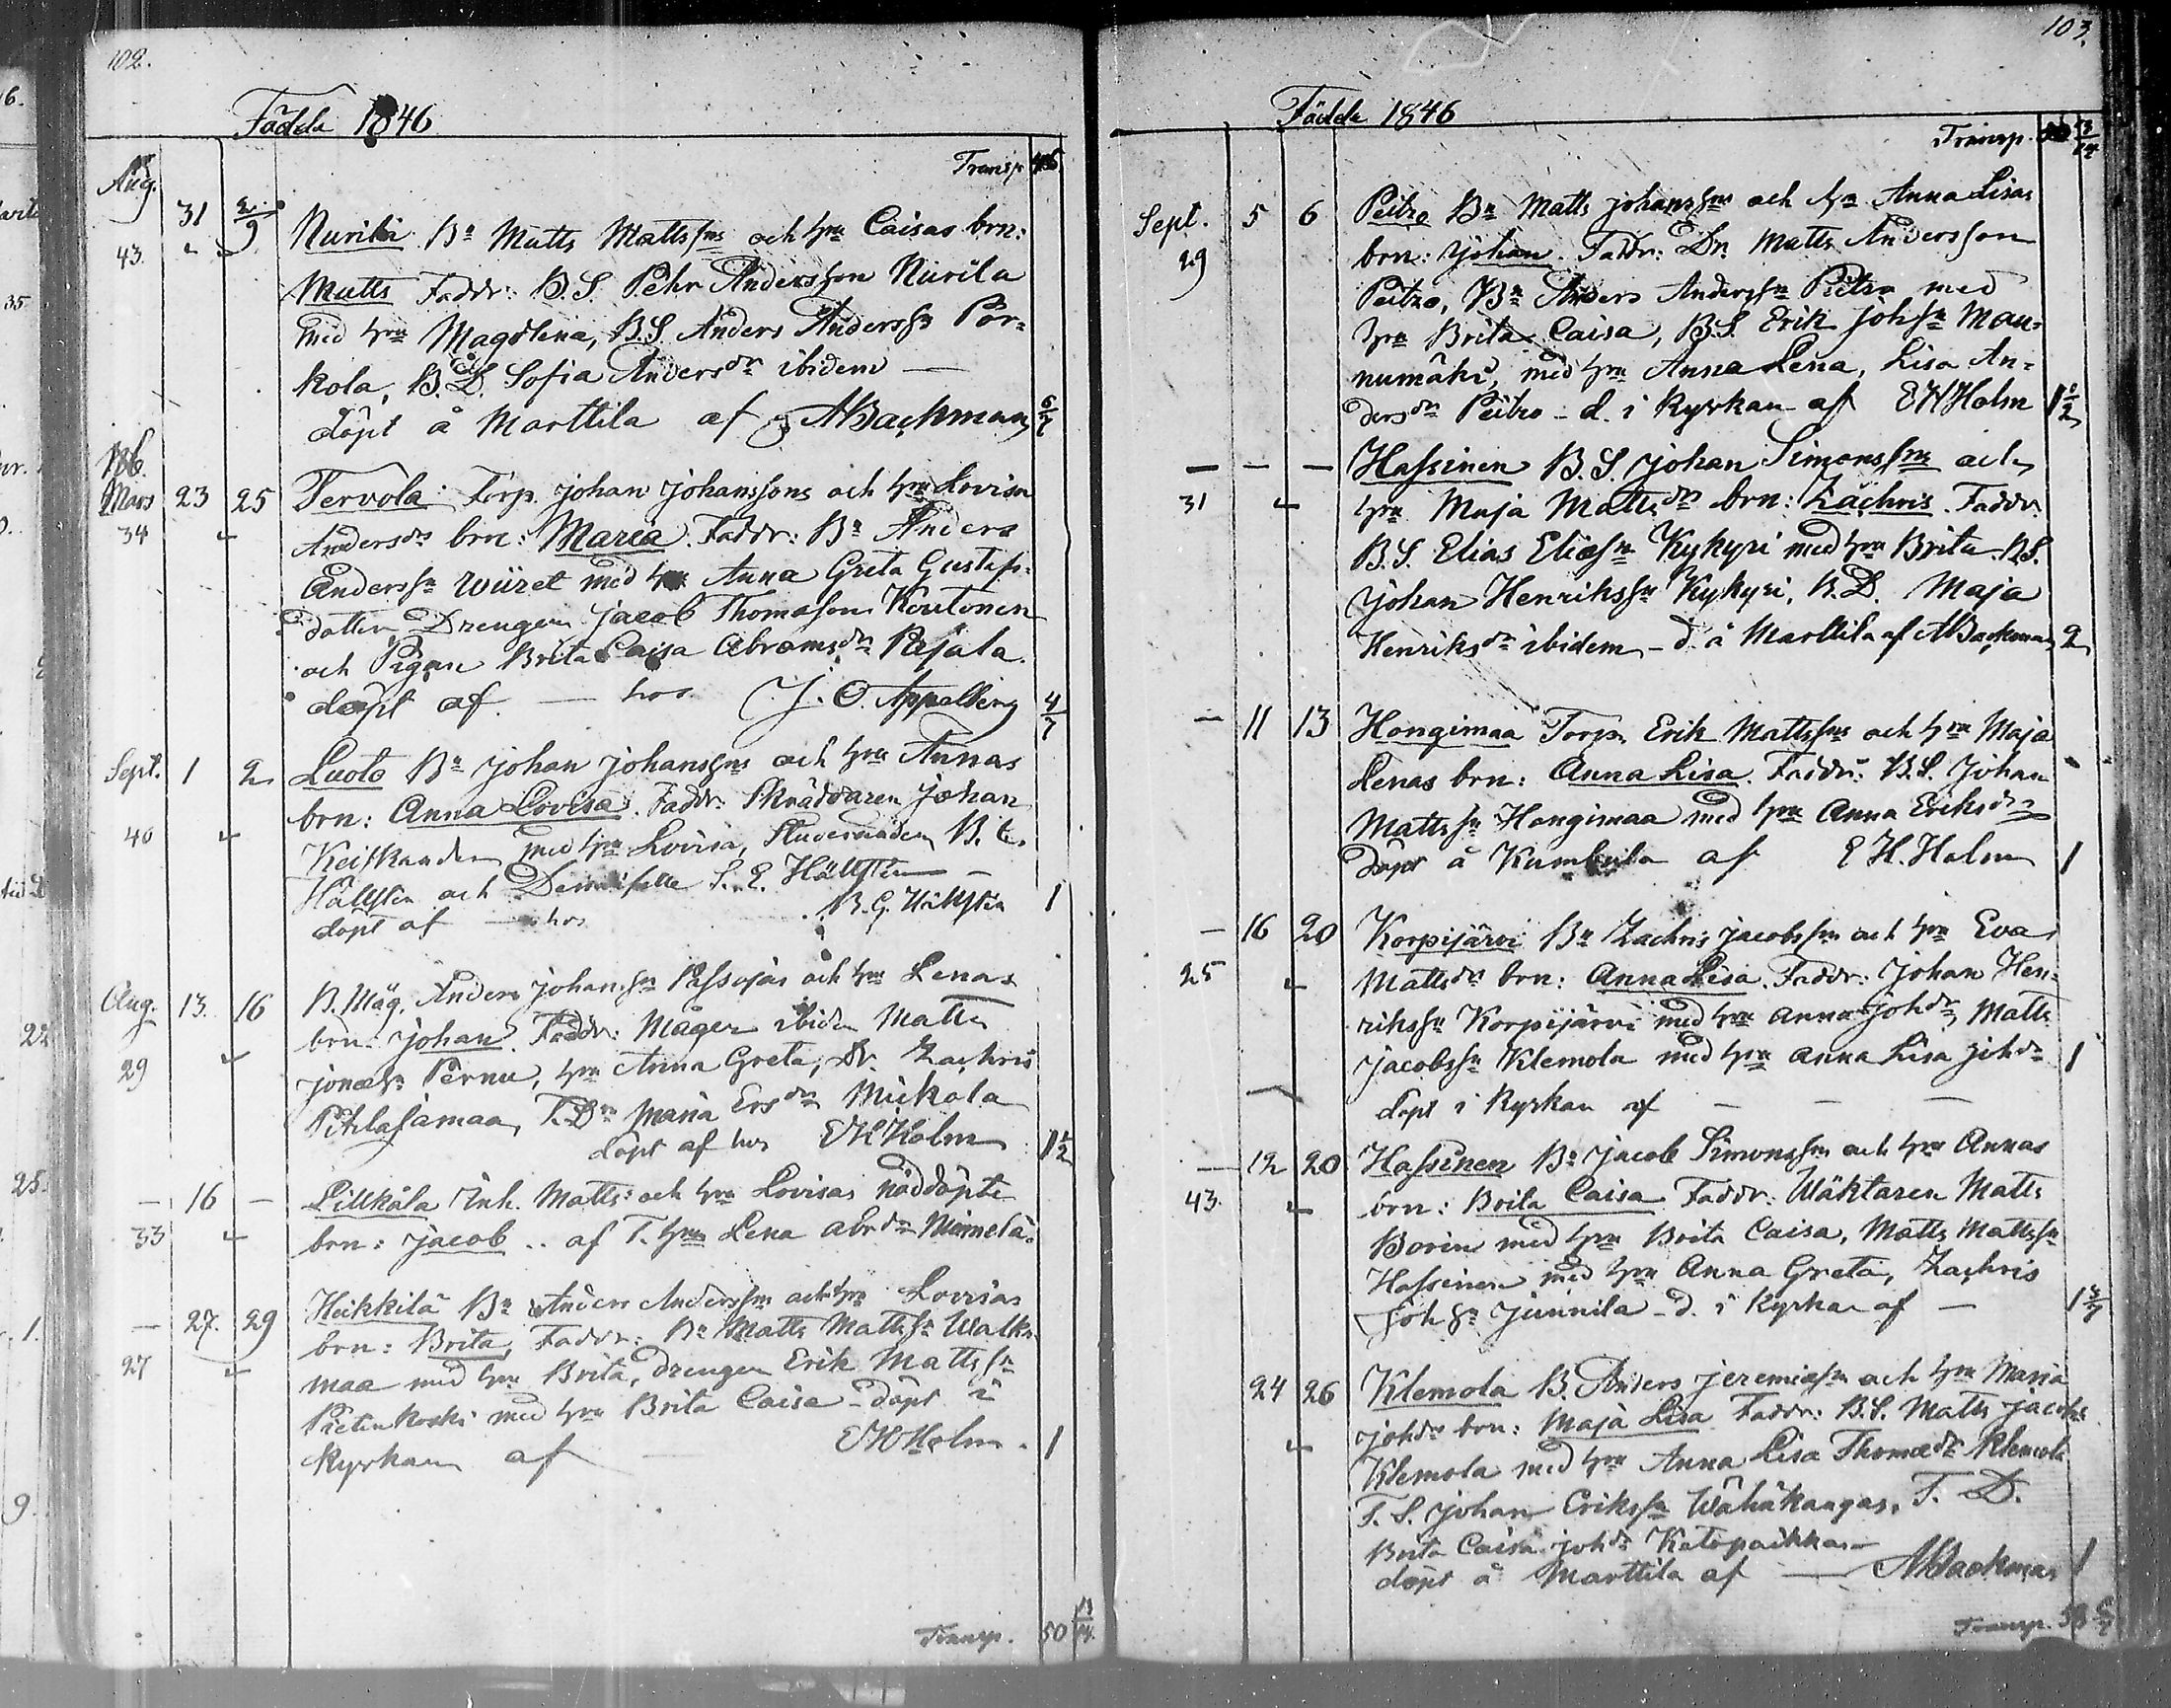 102.
Födde 1846
Transp 45
Aug. 31 2/9 Nurila Bn Matts Mattssons och hru Caisas brn:
43. Matts Faddr: B.S. Pehr Andersson Nurila
med hru Magdlena, B.S. Anders Anderssn Por-
kola, B.D. Sofia Andersdr ibidem —
döpt å Marttila af ABackman 6/7
Mars 23 25 Tervola: Torp. Johan Johanssons och hru Lovisa
34 Andersdrs brn: Maria. Faddr: Bn Anders
Anderssn Wiiret med hru Anna Greta Gustafs-
dotter, Drengen Jacob Thomasson Koutonen
och Pigan Brita Caisa Abramsdr Pajala.
döpt af — hos J. O. Appelberg 4/7
Sept. 1 2 Luoto Bn Johan Johanssns och hru Annas
40 brn: Anna Lovisa. Faddr: Skräddaren Johan
med hru Lovisa, Studeranden B. E.
Hällsten och Demoiselle S. E. Hällsten —
döpt af — hos B. G. Hällsten 1
Aug. 13. 16 B. Måg. Anders Johanssn Passoja och hru Lenas
29 brn: Johan. Faddr: Mågen ibidm Matts
Jonassn Pernu, hru Anna Greta, Dr. Zachris
Pihlajamaa, T.Dn Maria Ersdr Mickola
döpt af hos EHHolm 1 1/2
— 16 — Lillkåla Inh. Matts: och hru Lovisas nöddöpte
33 brn: Jacob .. af T. hru Lena Abrdr Niemelä.
— 27. 29 Heikkilä Bn Anders Anderssns och hru Lovisas
27 brn: Brita, Faddr: Bn Matts Mattssn Walki-
maa med hru Brita, drengen Erik Mattssn
Pietinkoski med hru Brita Caisa - döpt i
kyrkan af — EHHolm. 1
Transp. 50 13/14
103.
Födde 1846
Transp. 50 13/14
Sept. 5 6 Peitzo Bn Matts Johanssns och hru Anna Lisas
29 brn: Johan. Faddr: Dr. Matts Andersson
Peitzo, Bn Anders Anderssn Peitzo med
hru Brita Caisa, B.S. Erik Johssn Man-
numäki, med hru Anna Lena, Lisa An-
dersdr Peitzo - d. i kyrkan af EHHolm 1 1/2
— — — Hassinen B.S. Johan Simonssns och
31 hru Maja Mattsdrs brn: Zachris. Faddr.
B.S. Elias Eliassn Kykyri med hru Brita B.S.
Johan Henrikssn Kykyri, B.D. Maja
Henriksdr ibidem - d. å Marttila af ABackman 2
— 11 13 Hongimaa Torp. Erik Mattssns och hru Maja
Lenas brn: Anna Lisa. Faddr: B.S. Johan
Mattssn Hongimaa med hru Anna Eriksdr
döpt å Kumbula af E H. Holm 1
— 16 20 Korpijärvi Bn Zachris Jacobssns och hru Eva
25 Mattsdrs brn: Anna Lisa. Faddr: Johan Hen-
rikssn Korpijärvi med hru Anna Johdr, Matts
Jacobssn Klemola med hru Anna Lisa Johdr 1
döpt i kyrkan af — — —
— 12 20 Hassinen Bn Jacob Simonssns och hru Annas
43. brn: Brita Caisa Faddr: Wäktaren Matts
Borin med hru Brita Caisa, Matts Mattssn
Hassinen med hru Anna Greta, Zachris
Johssn Junnila - d. i kyrkan af — 1 3/7
24 26 Klemola B. Anders Jeremiassns och hru Maria
Johdrs brn: Maja Lisa Faddr: B.S. Matts Jacobs
Klemola med hru Anna Lisa Thomædr Klemola
T. S. Johan Erikssn Wähäkangas, T. D.
Brita Caisa Johdr Katopaikka —
döpt å Marttila af — ABackman 1
Transp.